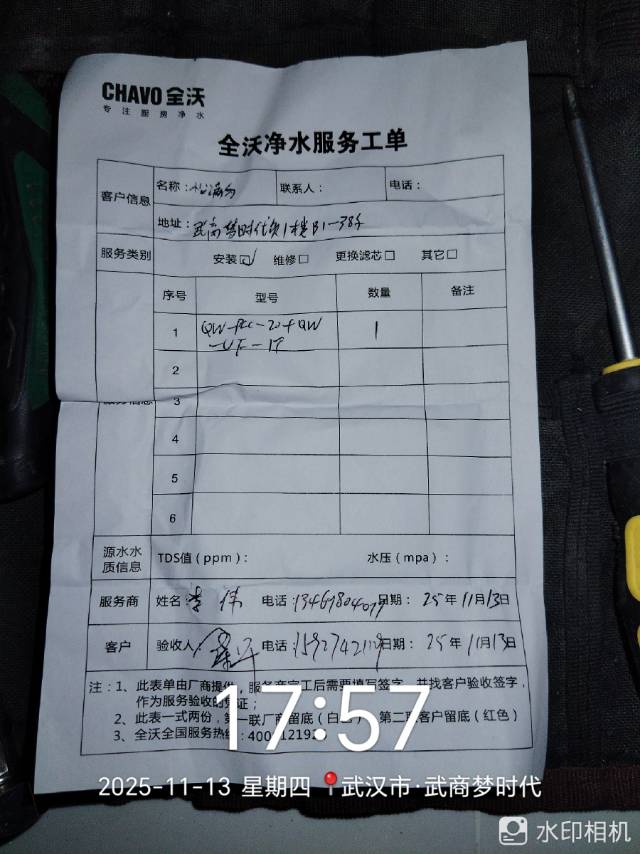 CHAVO 全沃
专注厨房净水
全沃净水服务工单
客户信息
名称：
联系人：
电话：
地址：武商梦时代
B1-38
服务类别
安装☑ 维修□ 更换滤芯□ 其它□
服务信息
序号 型号 数量 备注
1 QW-RC-20+QW 1
-UF-1T
2
3
4
5
6
源水水
质信息
TDS值（ppm）： 水压（mpa）：
服务商 姓名：李伟 电话： 日期：25年11月13日
客户 验收人： 电话： 日期：25年11月13日
注：1、此表单由厂商提供，服务商完工后需要填写签字，并找客户验收签字，
作为服务验收的凭证；
2、此表一式两份，第一联厂商留底（白色），第二联客户留底（红色）
3、全沃全国服务热线：400
17:57
2025-11-13 星期四 武汉市·武商梦时代
水印相机